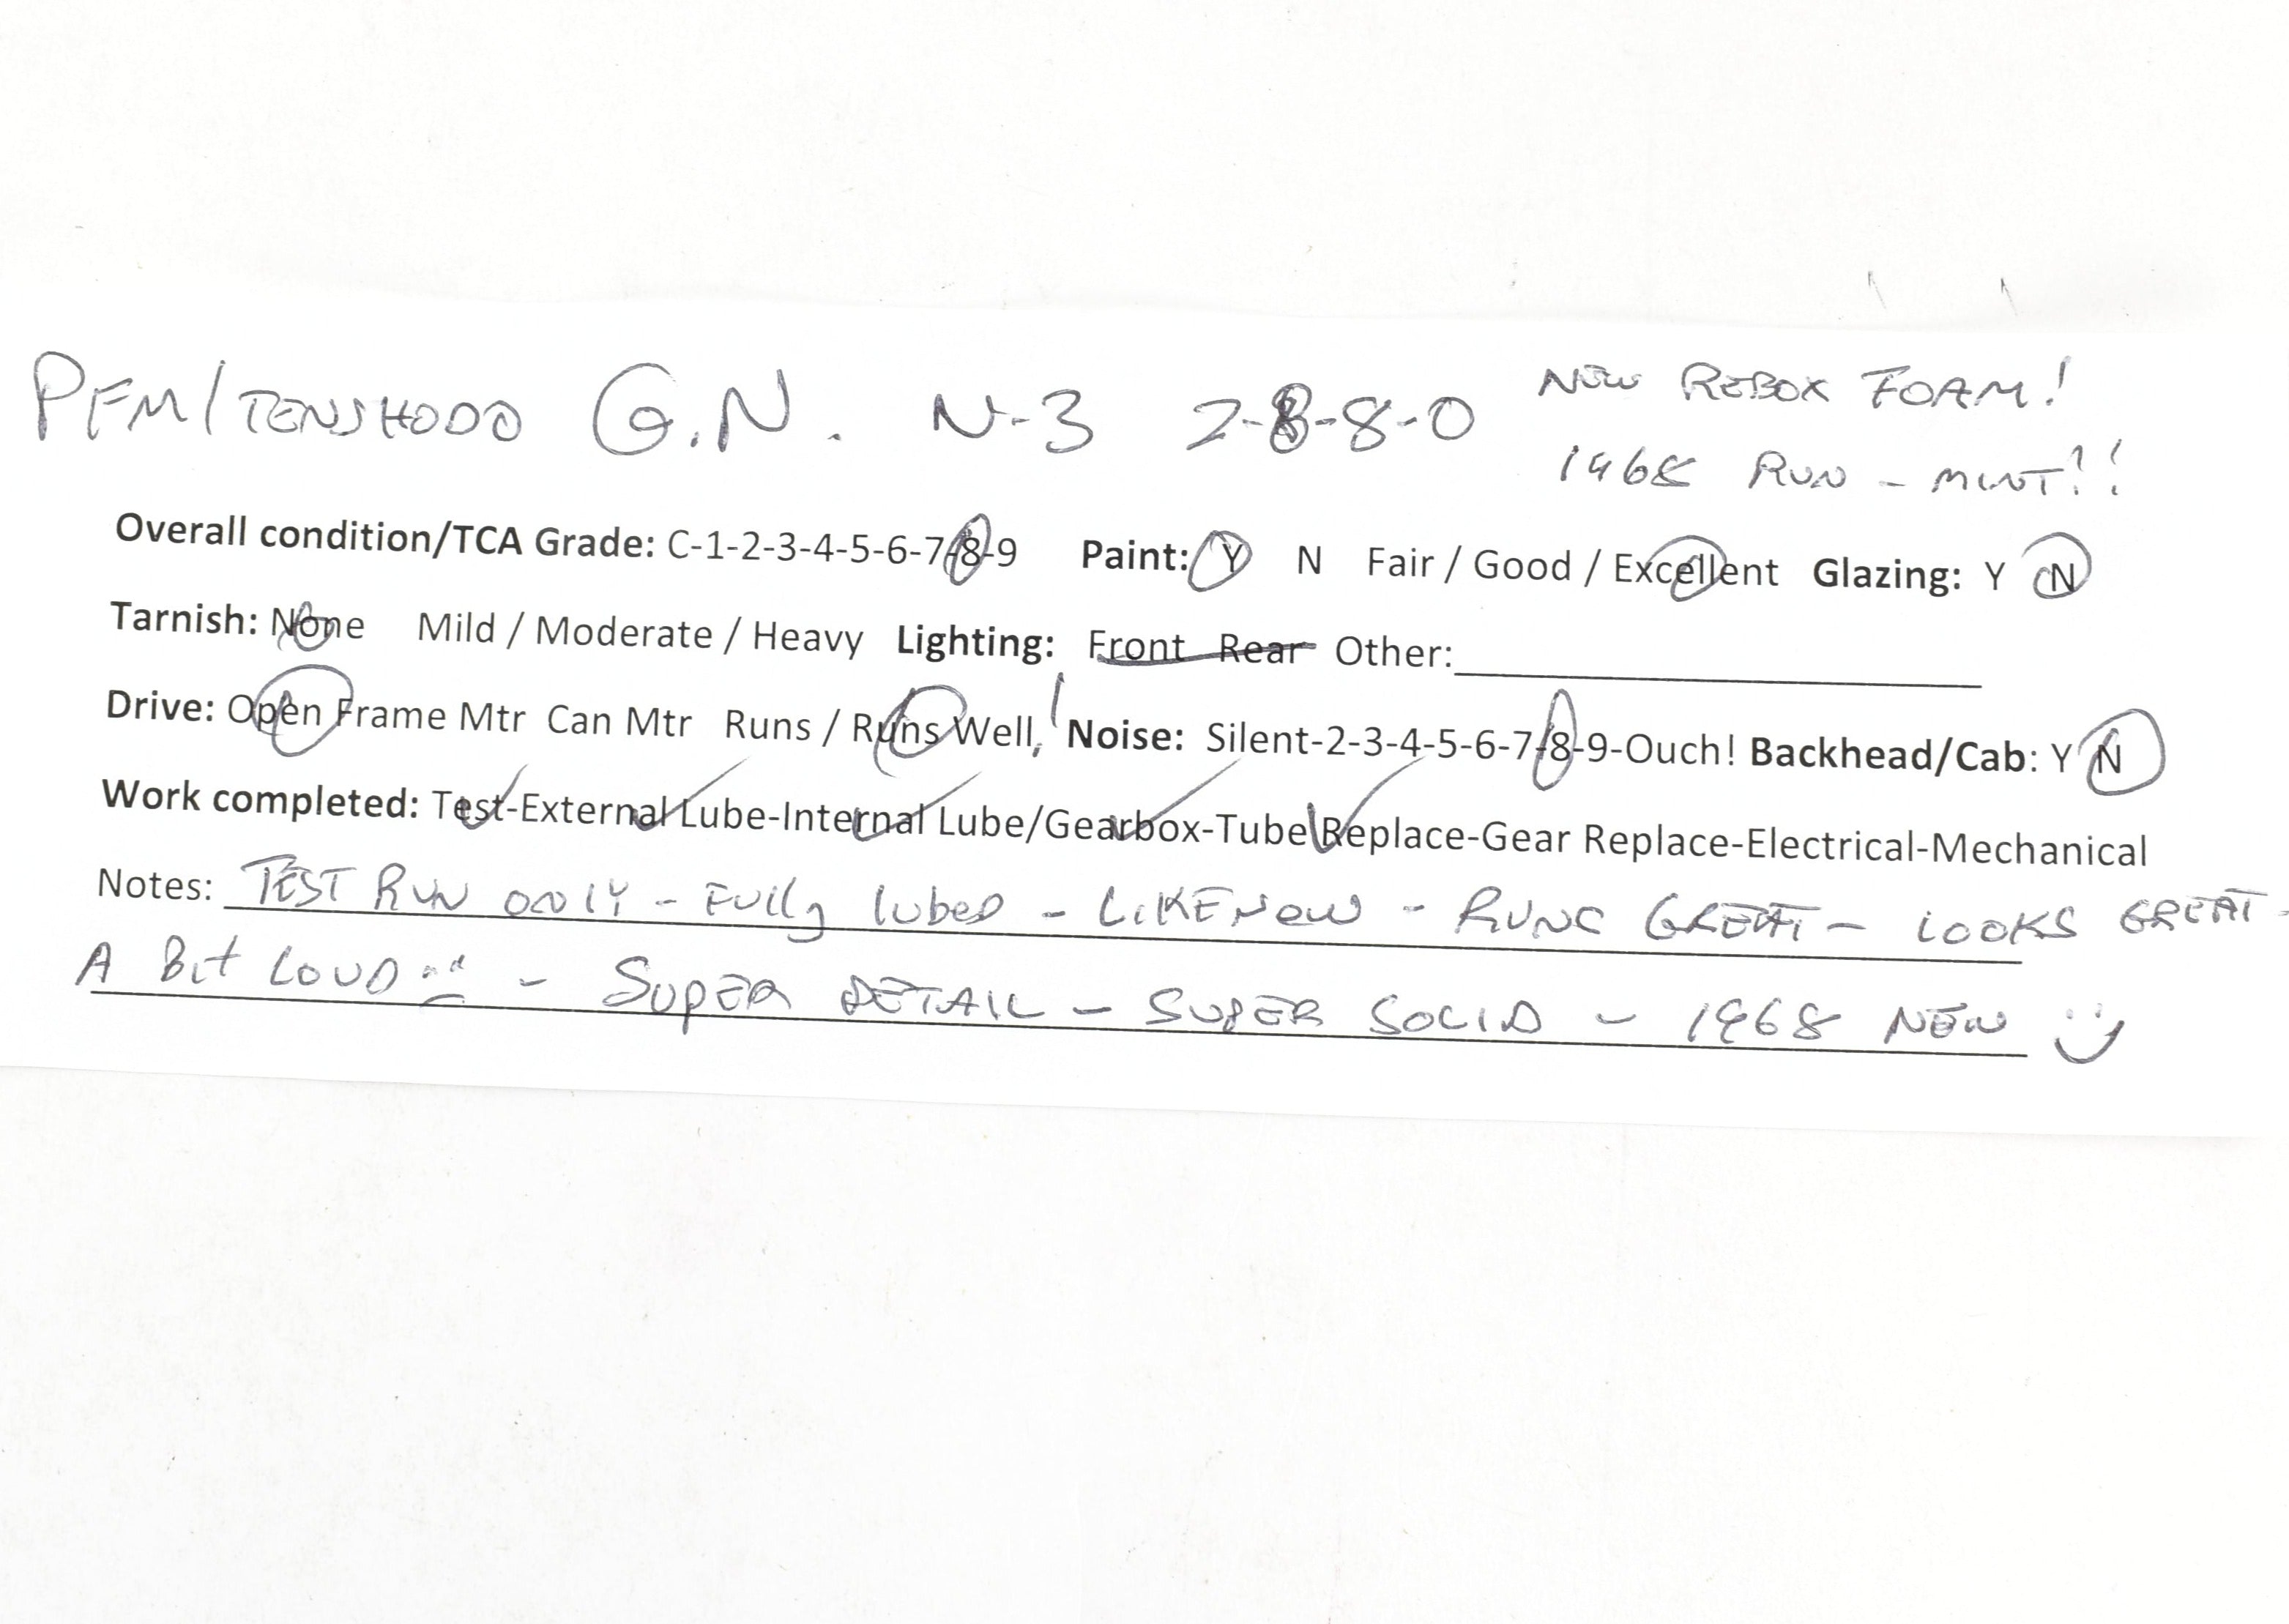 PFM/TENSHODO G.N. N-3 2-8-8-0 NEW REBOX FOAM!
1968 RUN - MINT!!
Overall condition/TCA Grade: C-1-2-3-4-5-6-7-8-9 Paint: Y N Fair / Good / Excellent Glazing: Y N
Tarnish: None Mild / Moderate / Heavy Lighting: Front Rear Other:
Drive: Open Frame Mtr Can Mtr Runs / Runs Well, Noise: Silent-2-3-4-5-6-7-8-9-Ouch! Backhead/Cab: Y N
Work completed: Test-External Lube-Internal Lube/Gearbox-Tube Replace-Gear Replace-Electrical-Mechanical
Notes: TEST RUN ONLY - Fully lubed - LIKE NEW - RUNS GREAT - LOOKS GREAT -
A Bit LOUD - SUPER DETAIL - SUPER SOLID - 1968 NEW